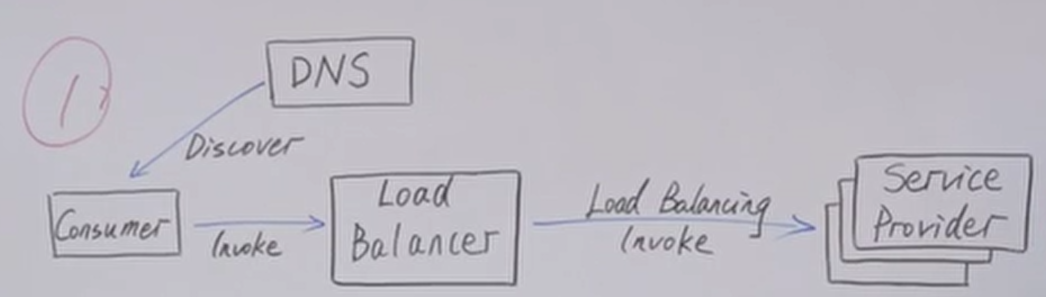 1
DNS
Discover
Consumer
Invoke
Load
Balancer
Load Balancing
Invoke
Service
Provider